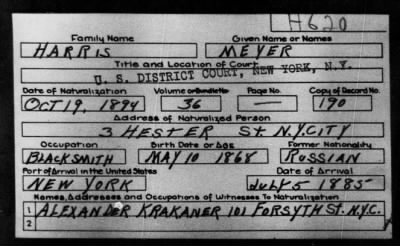 H620
Family Name Given Name or Names
HARRIS MEYER
Title and Location of Court
U. S. DISTRICT COURT, NEW YORK, N.Y.
Date of Naturalization Volume or Bundle No Page No. Copy of Record No.
OCT 19, 1894 36 — 190
Address of Naturalized Person
3 HESTER ST. N.Y. CITY
Occupation Birth Date or Age Former Nationality
BLACKSMITH MAY 10 1868 RUSSIAN
Port of Arrival in the United States Date of Arrival
NEW YORK JULY 5 1885
Names, Addresses and Occupations of Witnesses To Naturalization
1 ALEXANDER KRAKANER 101 FORSYTH ST. N.Y.C.
2